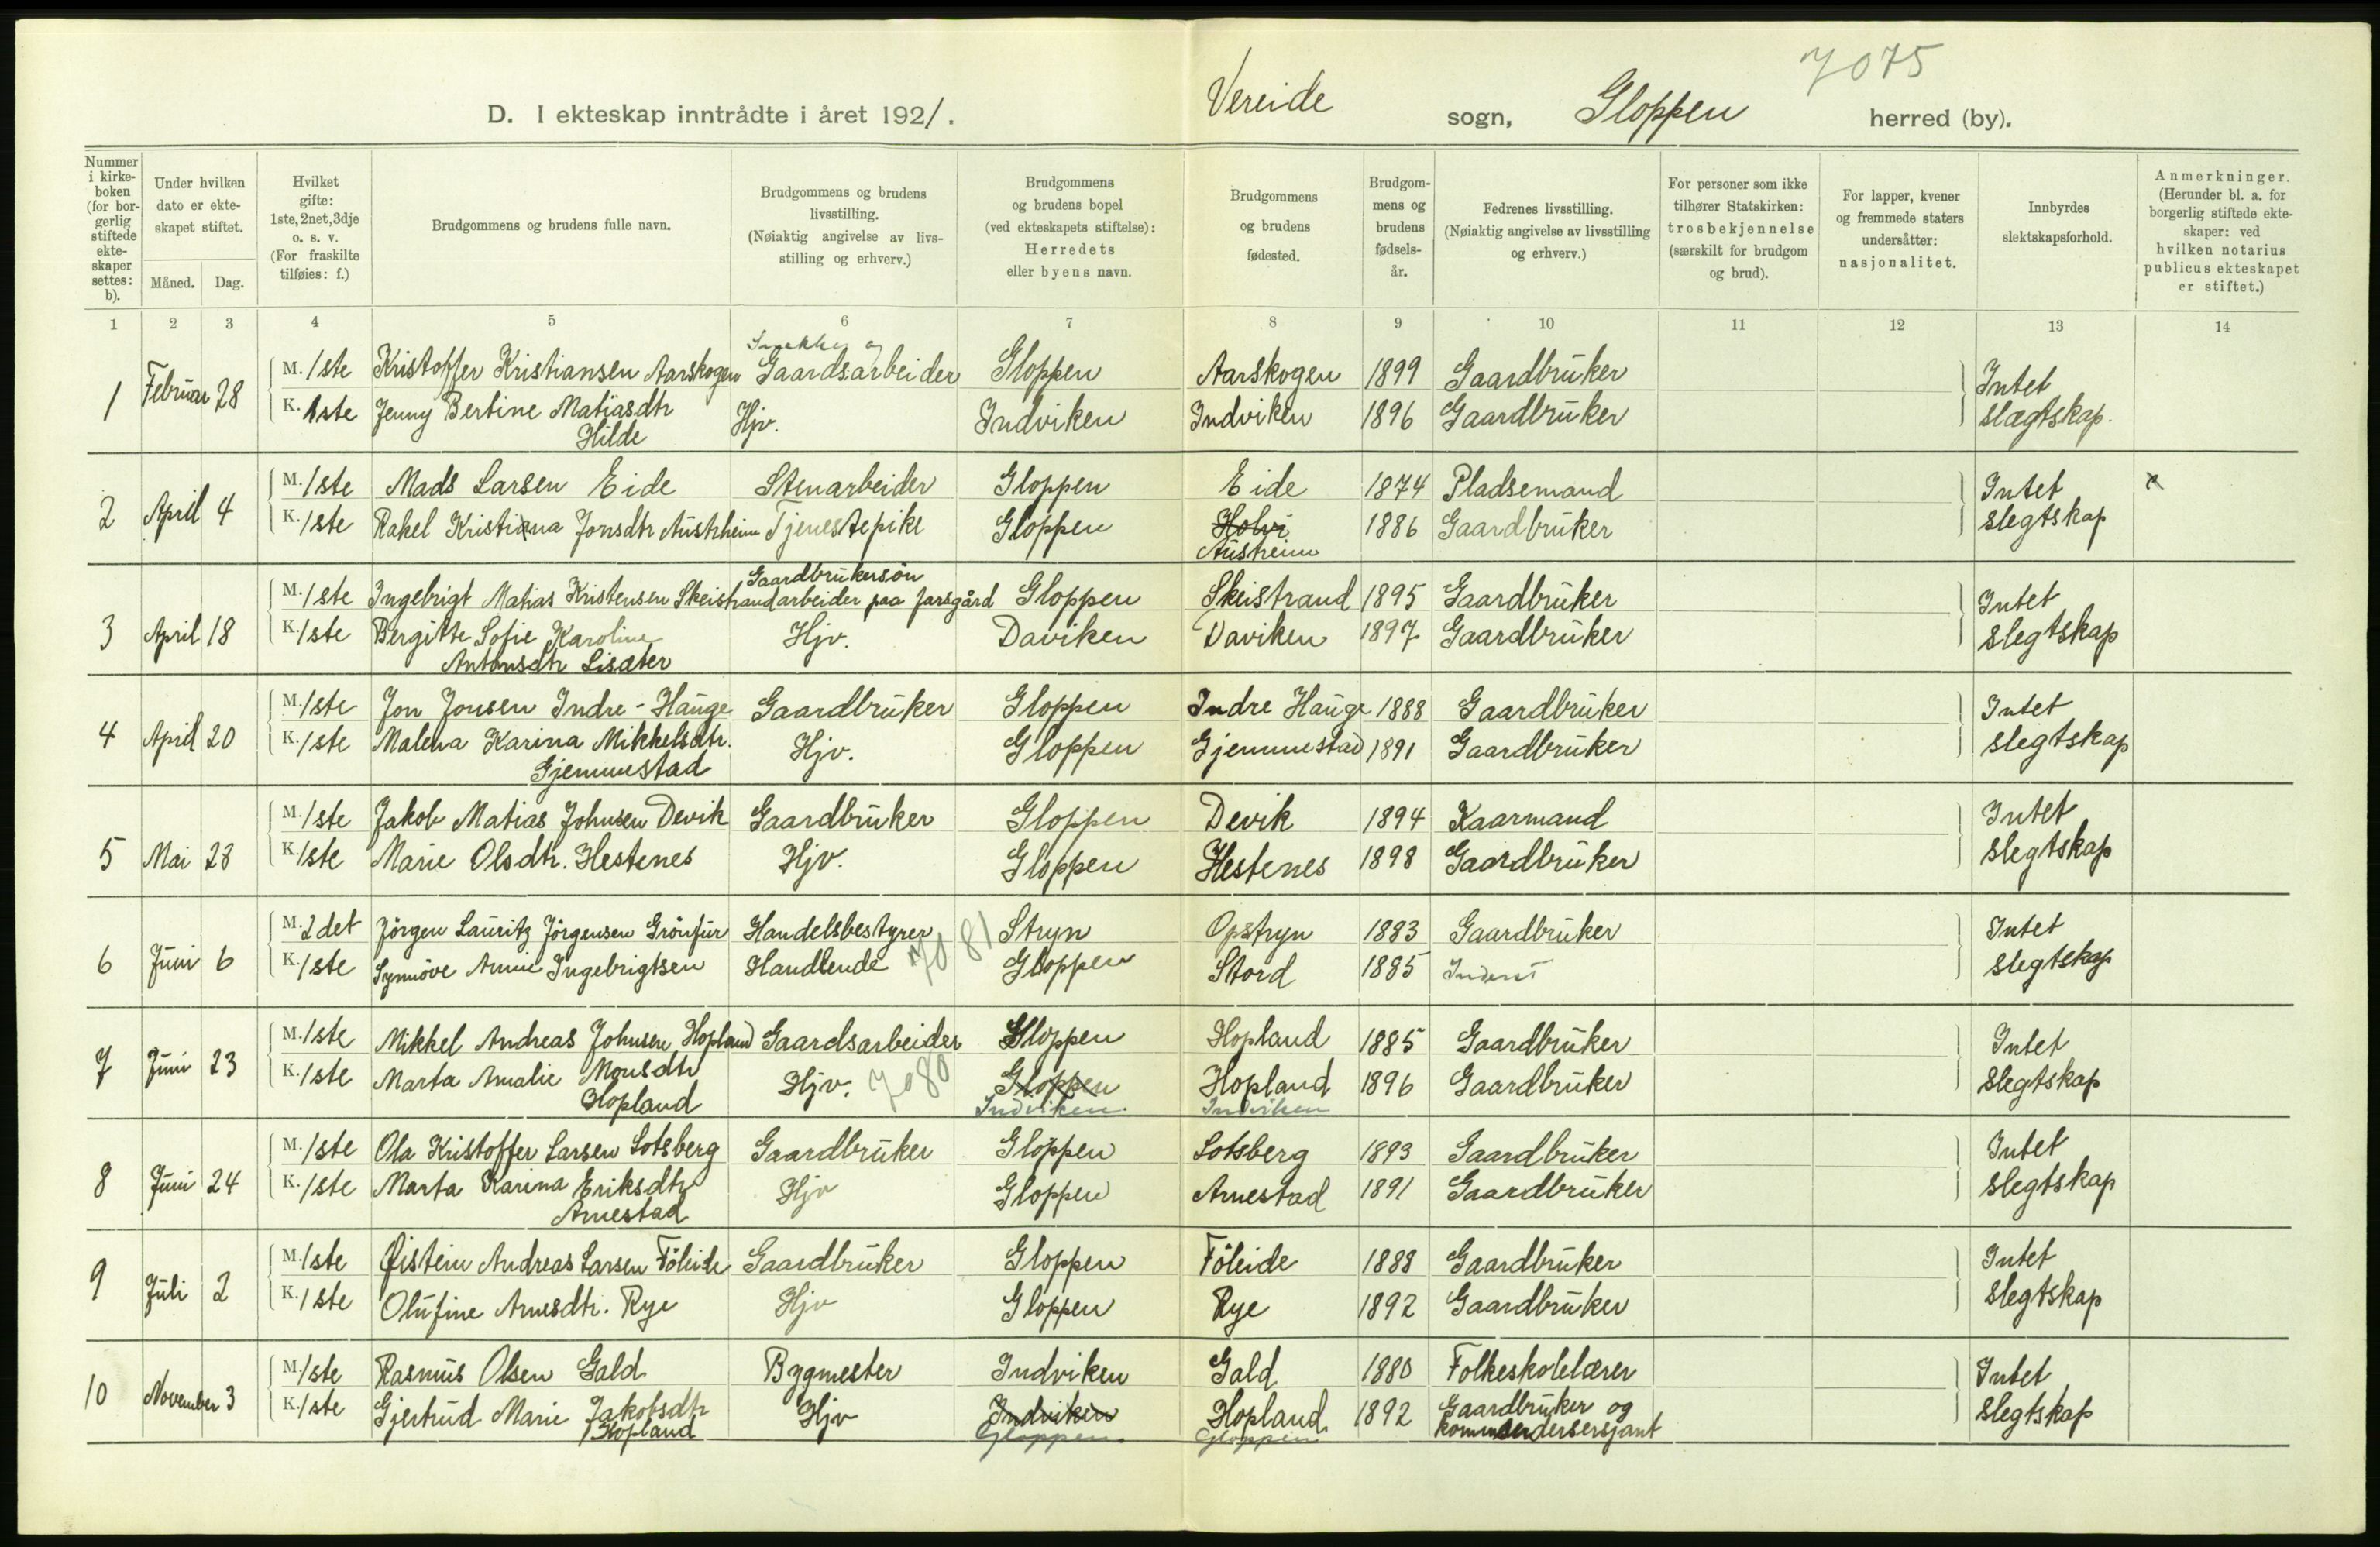 7075
D. I ekteskap inntrådte i året 1921. Vereide sogn, Gloppen herred (by).
Nummer i kirkeboken (for borgerlig stiftede ekteskaper settes: b).
Under hvilken dato er ekteskapet stiftet.
Måned. Dag.
Hvilket gifte: 1ste, 2net, 3dje o. s. v. (For fraskilte tilføies: f.)
Brudgommens og brudens fulle navn.
Brudgommens og brudens livsstilling. (Nøiaktig angivelse av livsstilling og erhverv.)
Brudgommens og brudens bopel (ved ekteskapets stiftelse): Herredets eller byens navn.
Brudgommens og brudens fødested.
Brudgommens og brudens fødselsår.
Fedrenes livsstilling. (Nøiaktig angivelse av livsstilling og erhverv.)
For personer som ikke tilhører Statskirken: trosbekjennelse (særskilt for brudgom og brud).
For lapper, kvener og fremmede staters undersåtter: nasjonalitet.
Innbyrdes slektskapsforhold.
Anmerkninger. (Herunder bl. a. for borgerlig stiftede ekteskaper: ved hvilken notarius publicus ekteskapet er stiftet.)
1 2 3 4 5 6 7 8 9 10 11 12 13 14
1 Februar 28 M. 1ste Kristoffer Kristiansen Aarskogen og Gaardsarbeider Gloppen Aarskogen 1899 Gaardbruker Intet
K. 1ste Jenny Bertine Matiasdtr Hjv. Indviken Indviken 1896 Gaardbruker slægtskap.
Hilde
2 April 4 M. 1ste Mads Larsen Eide Stenarbeider Gloppen Eide 1874 Pladsemand Intet x
K. 1ste Rakel Kristiana Jonsdtr Austrheim Tjenestepike Gloppen Holvi 1886 Gaardbruker slegtskap
Austreim
Gaardbrukersøn
3 April 18 M. 1ste Ingebrigt Matias Kristensen Skeistrand arbeider paa farsgård Gloppen Skeistrand 1895 Gaardbruker Intet
K. 1ste Bergitte Sofie Karoline Hjv. Daviken Daviken 1897 Gaardbruker slegtskap
Antonsdtr Lisæter
4 April 20 M. 1ste Jon Jonsen Indre-Hauge Gaardbruker Gloppen Indre Hauge 1888 Gaardbruker Intet
K. 1ste Malena Karina Mikkelsdtr. Hjv. Gloppen Gjemmestad 1891 Gaardbruker slegtskap
Gjemmestad
5 Mai 28 M. 1ste Jakob Matias Johnsen Devik Gaardbruker Gloppen Devik 1894 Kaarmand Intet
K. 1ste Marie Olsdtr. Hestenes Hjv. Gloppen Hestenes 1898 Gaardbruker slegtskap
6 Juni 6 M. 2det Jörgen Lauritz Jörgensen Grönfur Handelsbestyrer Stryn Opstryn 1883 Gaardbruker Intet
K. 1ste Synnöve Annie Ingebrigtsen Handlende 7081 Gloppen Stord 1885 slegtskap
7 Juni 23 M. 1ste Mikkel Andreas Johnsen Hopland Gaardsarbeider Gloppen Hopland 1885 Gaardbruker Intet
K. 1ste Marta Amalie Monsdtr Hjv. 7080 Gloppen Hopland 1896 Gaardbruker slegtskap
Hopland Indviken. Indviken
8 Juni 24 M. 1ste Ola Kristoffer Larsen Sotsberg Gaardbruker Gloppen Sotsberg 1893 Gaardbruker Intet
K. 1ste Marta Karina Eriksdtr Hjv Gloppen Arnestad 1891 Gaardbruker slegtskap
Arnestad
9 Juli 2 M. 1ste Øistein Andreas Larsen Föleide Gaardbruker Gloppen Föleide 1888 Gaardbruker Intet
K. 1ste Olufine Arnesdtr. Rye Hjv Gloppen Rye 1892 Gaardbruker slegtskap
10 November 3 M. 1ste Rasmus Olsen Gald Bygmester Indviken Gald 1880 Folkeskolelærer Intet
K. 1ste Gjertrud Marie Jakobsdtr Hjv Indviken Hopland 1892 Gaardbruker og slegtskap
Hopland Gloppen Gloppen kommandersersjant